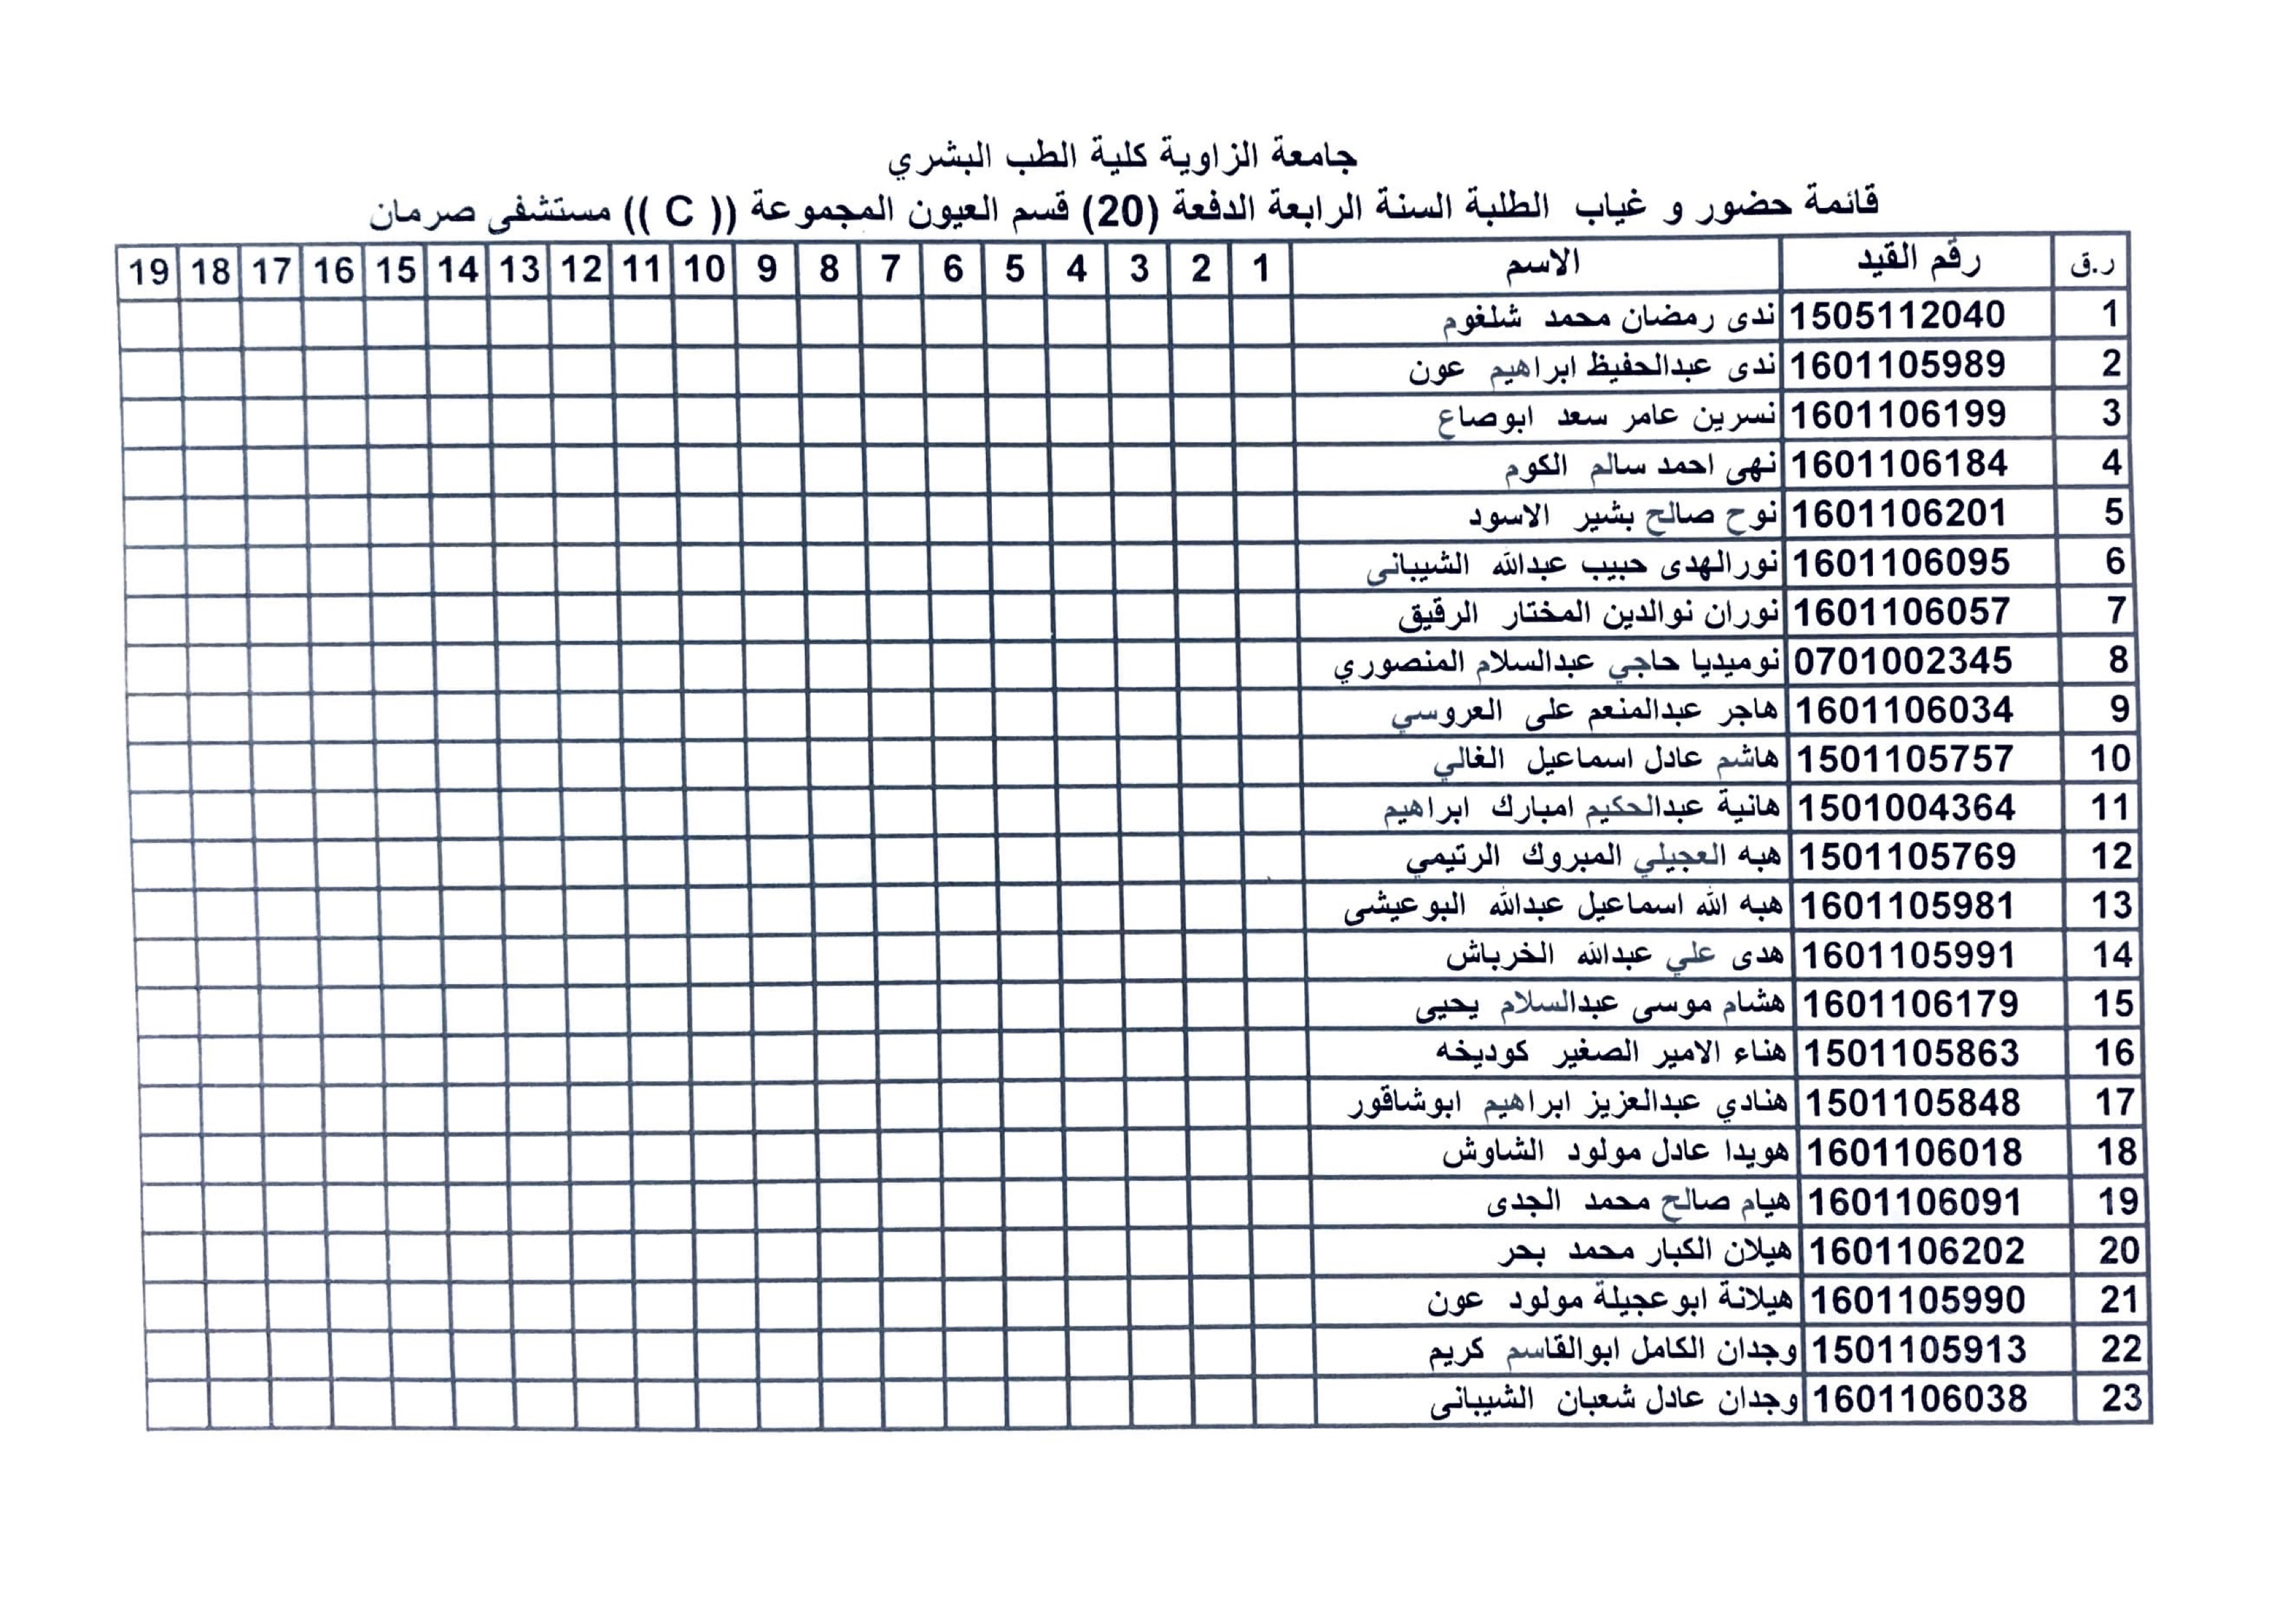 جامعة الزاوية كلية الطب البشري
قائمة حضور و غياب الطلبة السنة الرابعة الدفعة (20) قسم العيون المجموعة (( C )) مستشفى صرمان
ر.ق رقم القيد الاسم 1 2 3 4 5 6 7 8 9 10 11 12 13 14 15 16 17 18 19
1 1505112040 ندى رمضان محمد شلغوم
2 1601105989 ندى عبدالحفيظ ابراهيم عون
3 1601106199 نسرين عامر سعد ابوصاع
4 1601106184 نهى احمد سالم الكوم
5 1601106201 نوح صالح بشير الاسود
6 1601106095 نورالهدى حبيب عبدالله الشيبانى
7 1601106057 نوران نوالدين المختار الرقيق
8 0701002345 نوميديا حاجي عبدالسلام المنصوري
9 1601106034 هاجر عبدالمنعم على العروسي
10 1501105757 هاشم عادل اسماعيل الغالي
11 1501004364 هانية عبدالحكيم امبارك ابراهيم
12 1501105769 هبه العجيلي المبروك الرتيمي
13 1601105981 هبه الله اسماعيل عبدالله البوعيشى
14 1601105991 هدى علي عبدالله الخرباش
15 1601106179 هشام موسى عبدالسلام يحيى
16 1501105863 هناء الامير الصغير كوديخه
17 1501105848 هنادي عبدالعزيز ابراهيم ابوشاقور
18 1601106018 هويدا عادل مولود الشاوش
19 1601106091 هيام صالح محمد الجدى
20 1601106202 هيلان الكبار محمد بحر
21 1601105990 هيلانة ابوعجيلة مولود عون
22 1501105913 وجدان الكامل ابوالقاسم كريم
23 1601106038 وجدان عادل شعبان الشيبانى